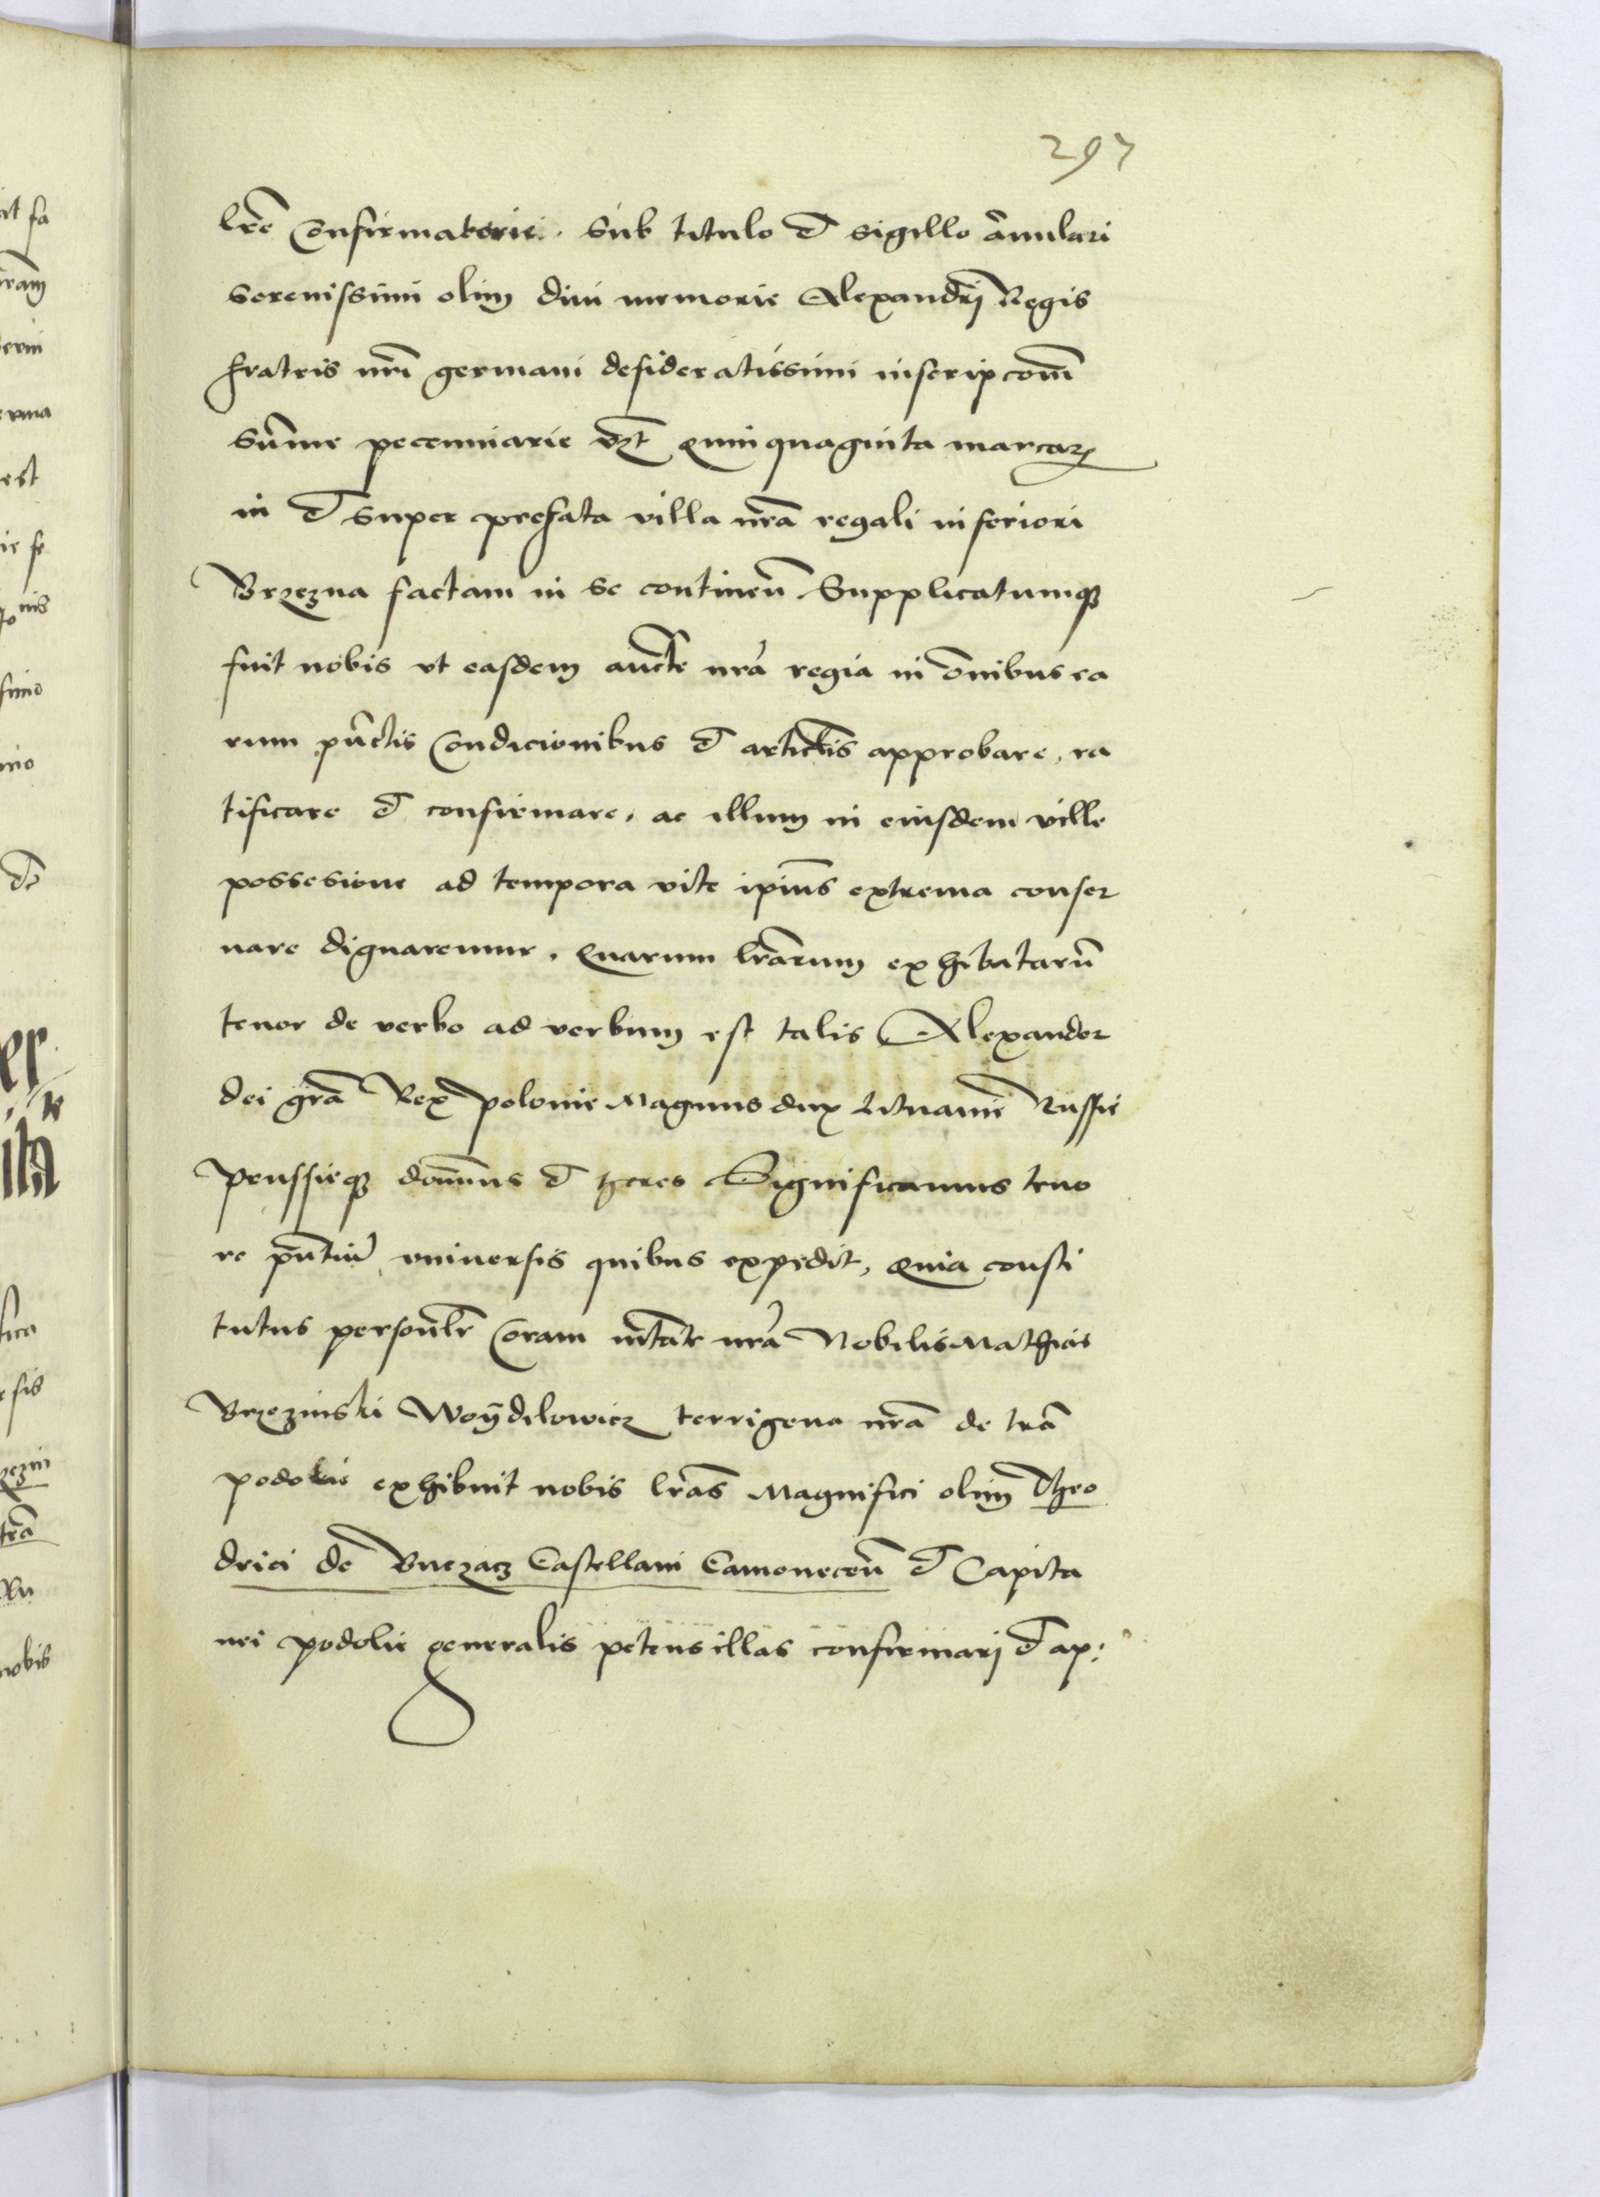 297
lrẽ Confirmatorie. Sub titulo et sigillo ãnulari
Serenissimi olim diui memorie Alexandrj Regis
fratris nrĩ germani desideratissimi inscripcoem̃
Sum̃e pecenniarie vzt Quinquaginta marcarꝝ
in et super prefata villa nrã regali inferiori
Brzezna factam in se contineñ. Supplicatumqꝫ
fuit nobis vt easdem aucte nrã regia in õnibus ea
rum pũctis Condicionibus et articlis approbare, ra
tificare et confirmare, ac illum in eiusdem ville
possesione ad tempora vite ipĩus extrema conser
uare dignaremur. Quarum lrãrum exhibitarũ
tenor de verbo ad verbum est talis Alexander
dei grã Rex polonie Magnus dux Lituanie Russie
prussieqꝫ domĩnus et heres Significamus teno
re pñtiũ vniuersis quibus expedit, Quia consti
tutus personlr Coram mtate nrã Nobilis Mathias
Brzezinski Woÿdilowicz terrigena nrã de trã
podolie exhibuit nobis lrãs Magnifici olim Theo
drici de Buczacz Castellani Cameneceñ et Capita
nei podolie generalis petens illas confirmarj et ap: